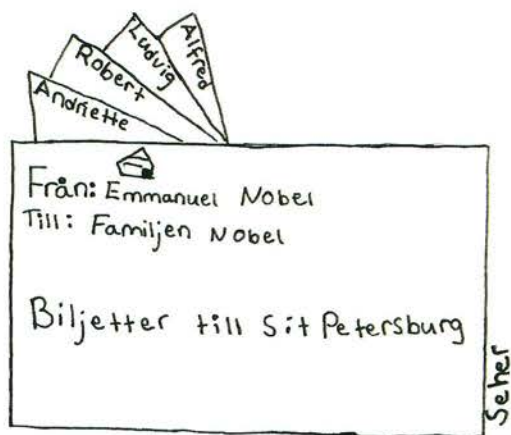 Andriette
Robert
Ludvig
Alfred
Från: Emmanuel Nobel
Till: Familjen Nobel
Biljetter till Sit Petersburg
Seher